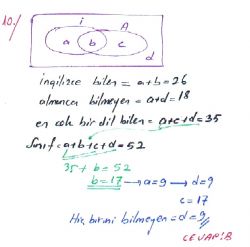 10./
i A
a b c
d
ingilizce bilen = a+b=26
almanca bilmeyen = a+d=18
en çok bir dil bilen = a+c+d=35
Sınıf = a+b+c+d = 52
35 + b = 52
b = 17 → a=9 → d=9
c = 17
Hiç birini bilmeyen = d = 9//
CEVAP:B